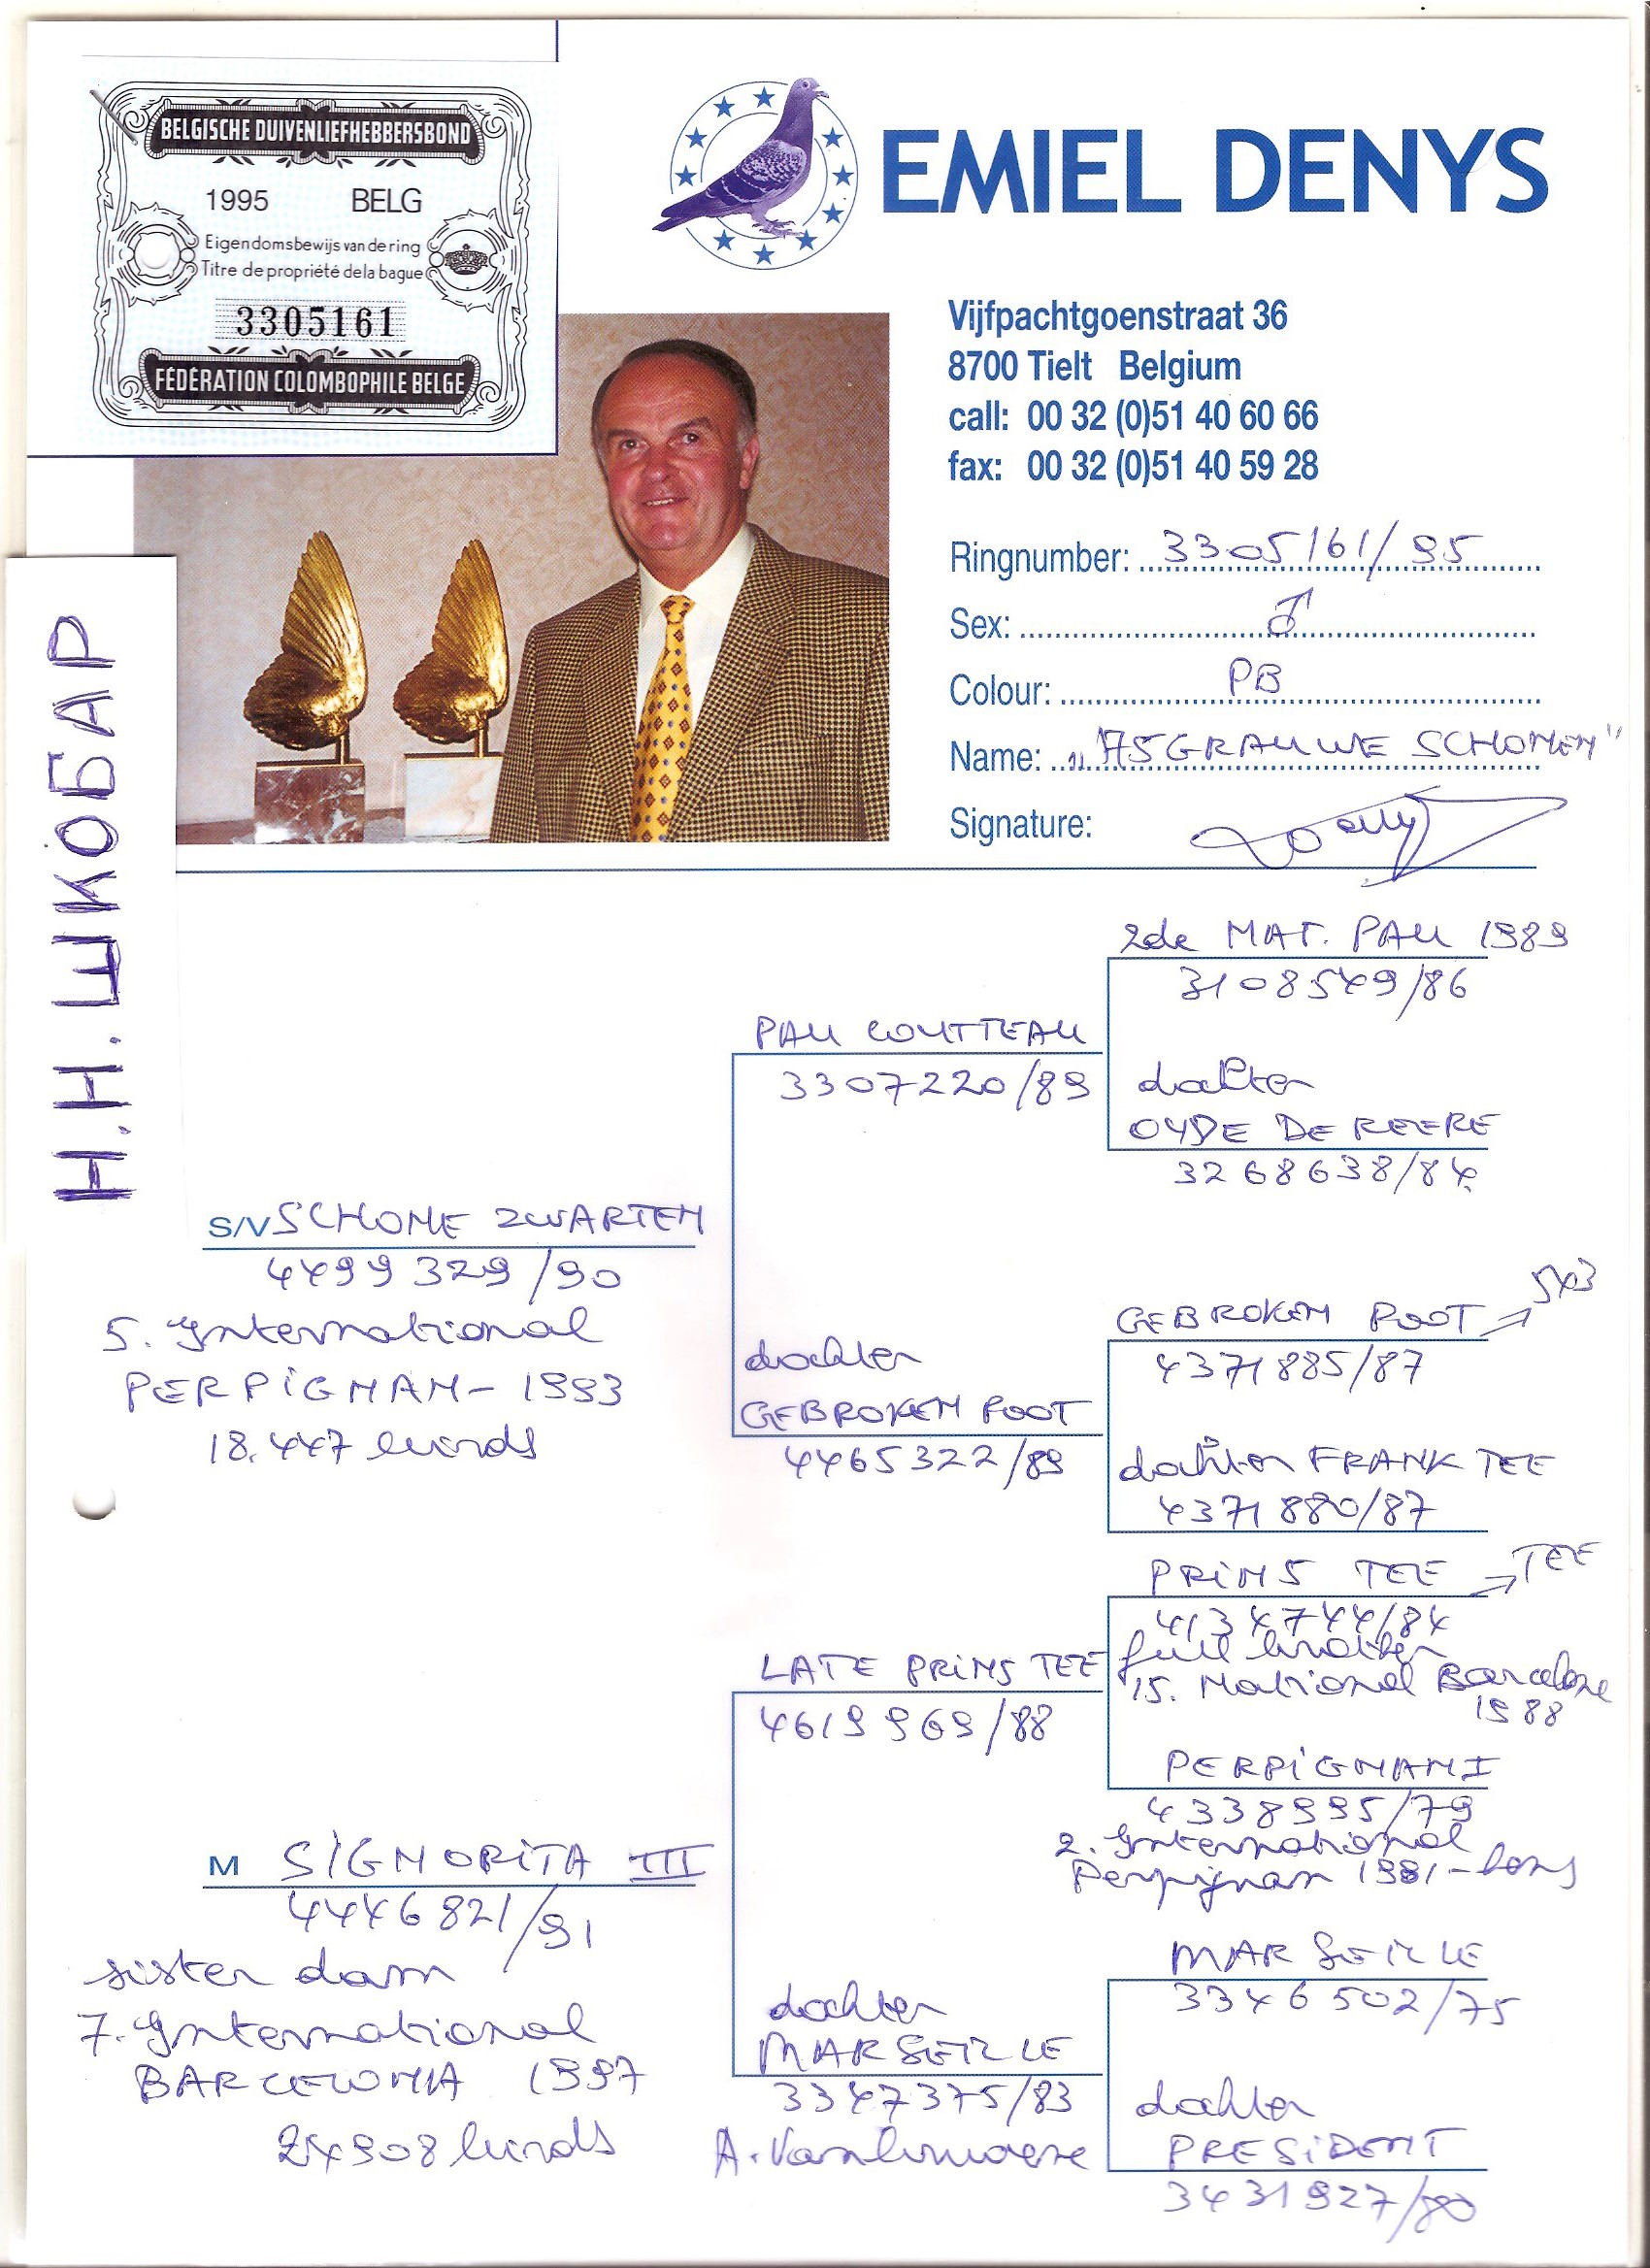 BELGISCHE DUIVENLIEFHEBBERSBOND
1995 BELG
Eigendomsbewijs van de ring
Titre de propriété de la bague
3305161
FÉDÉRATION COLOMBOPHILE BELGE
EMIEL DENYS
Vijfpachtgoenstraat 36
8700 Tielt Belgium
call: 00 32 (0)51 40 60 66
fax: 00 32 (0)51 40 59 28
Ringnumber: 3305161/95
Sex: ♂
Colour: PB
Name: „ GRAUWE SCHONEN"
Signature:
Н.Н.ШКОБАР
2de MAT. PAU 1989
3108549/86
PAU COUTTEAU
3307220/89
dochter
OUDE DE REERE
3268638/84
S/V SCHONE ZWARTEN
4499329/90
5. International
PERPIGNAN - 1993
18.447 birds
GEBROKEN POOT → 543
4371885/87
dochter
GEBROKEN POOT
4465322/89
dochter FRANK TEE
4371880/87
PRINS TEE → TEE
4134744/84
full brother
15. National Barcelone
1988
LATE PRINS TEE
4619969/88
PERPIGNAN I
4338995/79
2. International
Perpignan 1981 -
M SIGNORITA III
4446821/91
sister dam
7. International
BARCELONA 1997
24908 birds
MARSEILLE
3346502/75
dochter
MARSEILLE
3347375/83
A. Vanbruaene
dochter
PRESIDENT
3431927/80